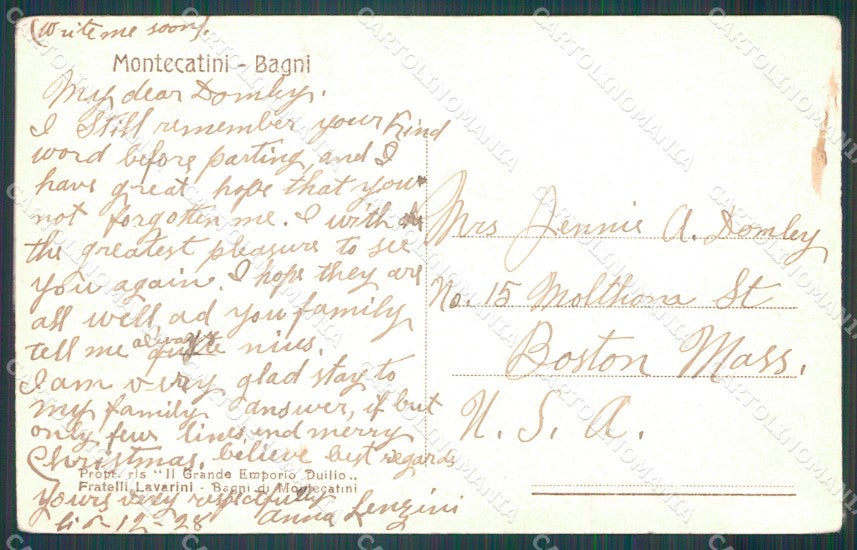 (Write me soon).
Montecatini - Bagni
My dear Domley.
I Still remember your kind
word before parting, and I
have great hope that you
not forgotten me. I with
the greatest pleasure to see
you again. I hope they are
all well ad you family
tell me always nius.
I am very glad stay to
my family answer, if but
only few lines, end merry
Christmas. believe best regards
Propr. ris "Il Grande Emporio Duilio„
Fratelli Lavarini - Bagni di Montecatini
yours very respectfully
Anna Lenzini
li 6-12-28
Mrs Jennie A. Domley
No. 15 Molthona St
Boston Mass.
U. S. A.
CARTOLINOMANIA